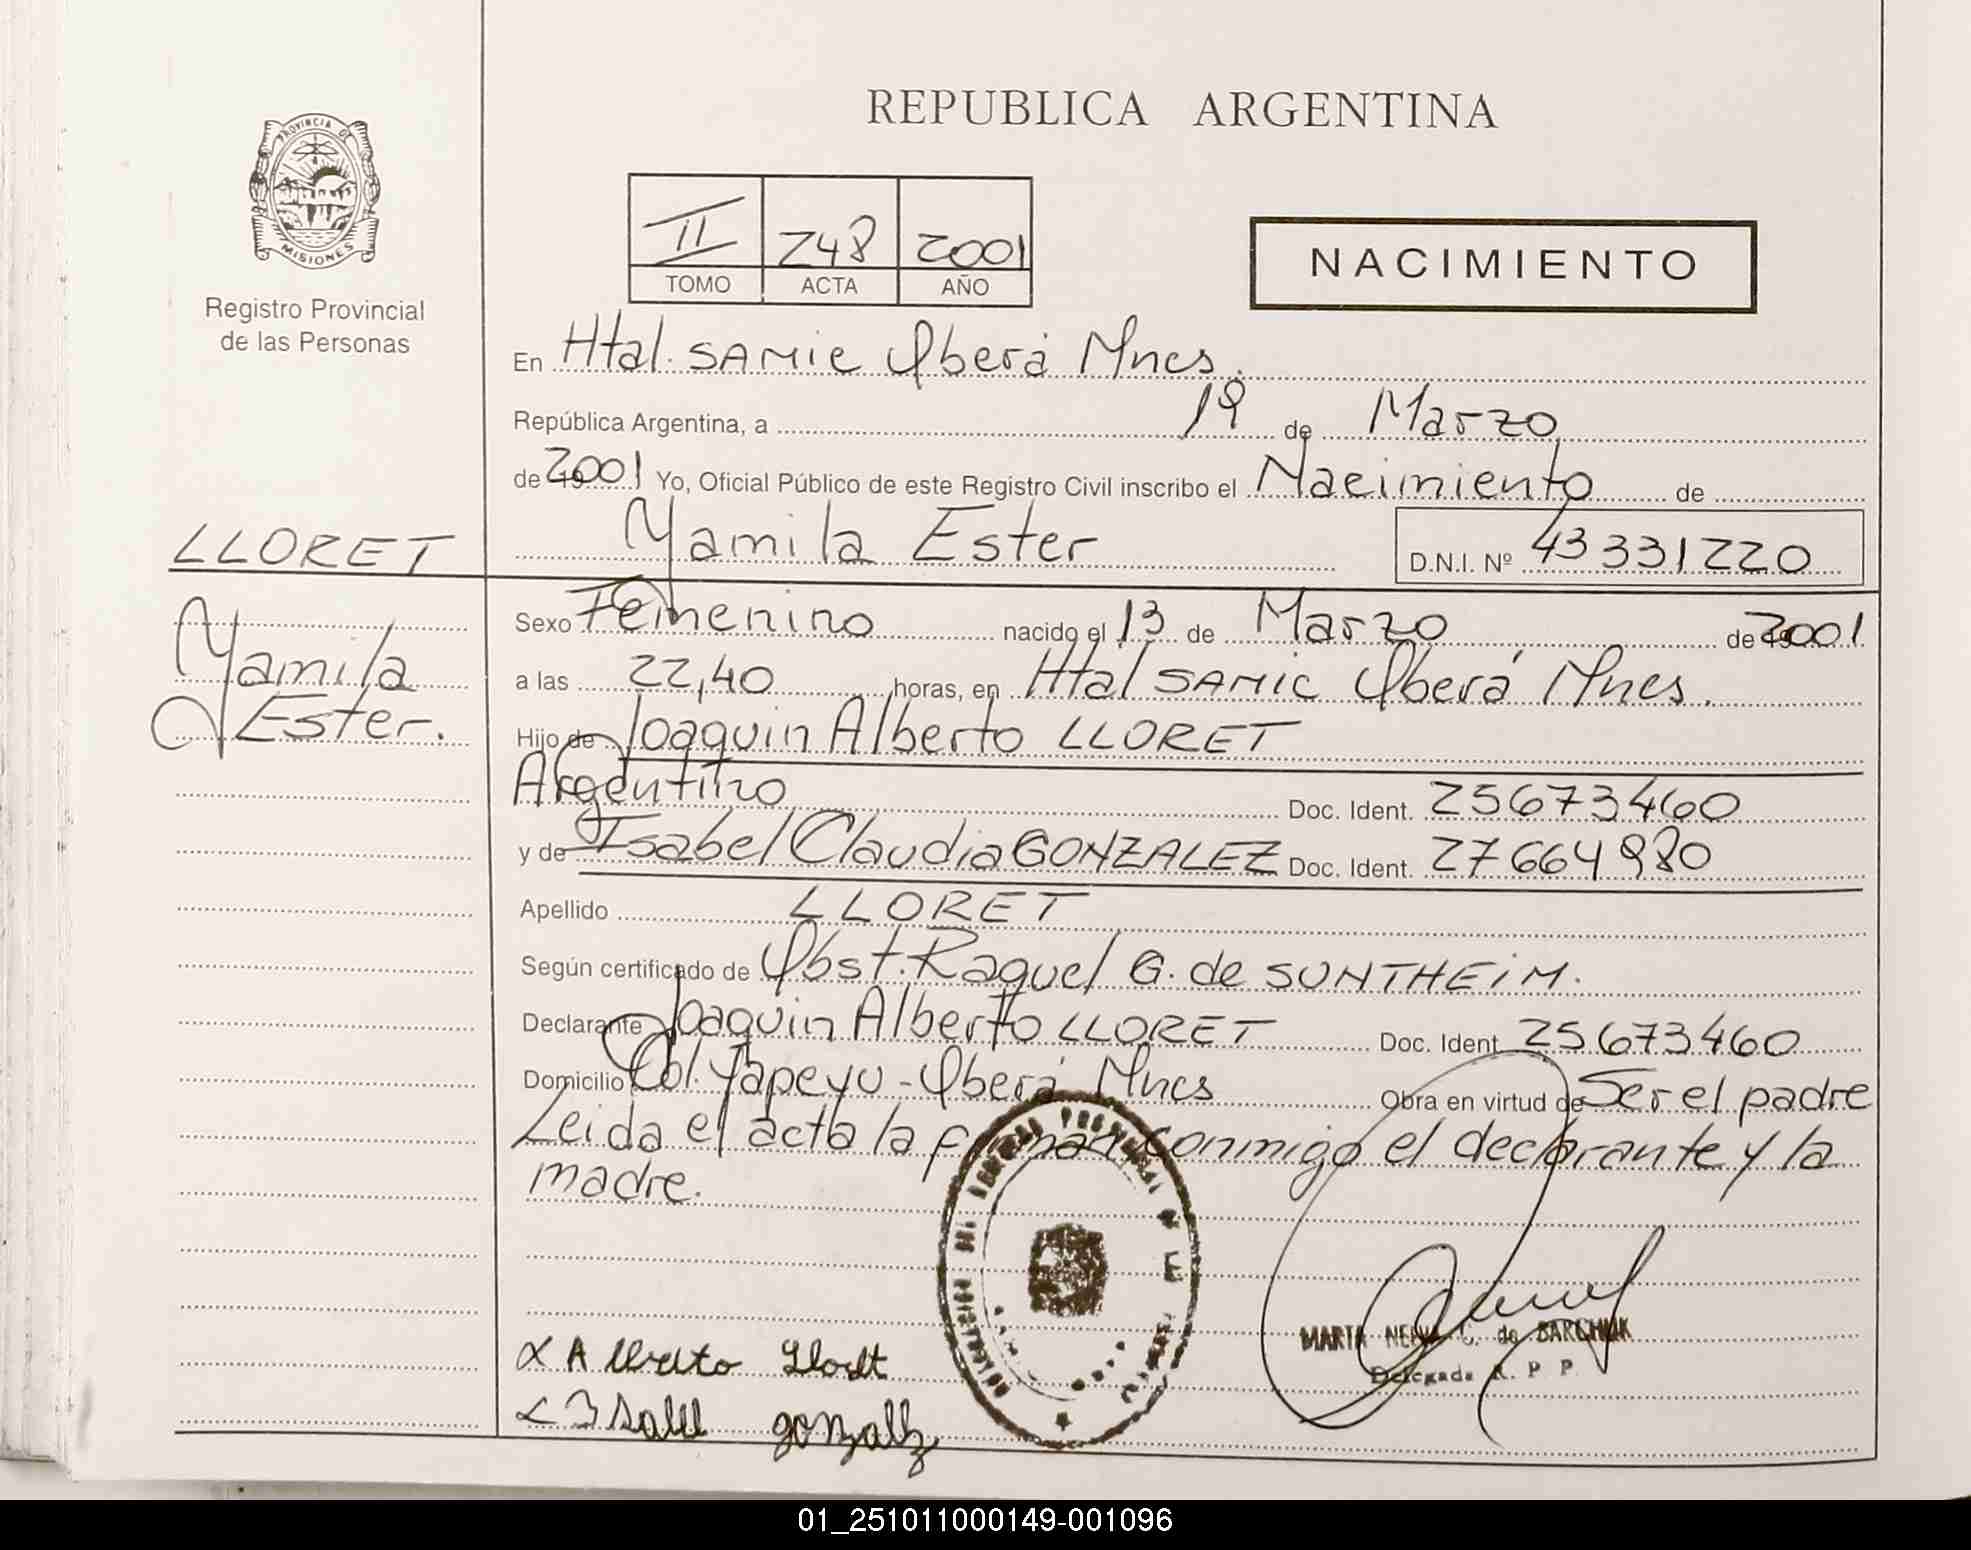 REPUBLICA ARGENTINA
PROVINCIA DE
MISIONES
Registro Provincial
de las Personas
II 248 2001
TOMO ACTA AÑO
NACIMIENTO
En Htal. SAMIC Oberá Mnes.
República Argentina, a 19 de Marzo
de 2001 Yo, Oficial Público de este Registro Civil inscribo el Nacimiento de
Yamila Ester D.N.I. Nº 43331220
LLORET
Yamila
Ester.
Sexo Femenino nacido el 13 de Marzo de 2001
a las 22,40 horas, en Htal SAMIC Oberá Mnes.
Hijo de Joaquin Alberto LLORET
Argentino Doc. Ident. 25673460
y de Isabel Claudia GONZALEZ Doc. Ident. 27664980
Apellido LLORET
Según certificado de Obst. Raquel G. de SUNTHEIM.
Declarante Joaquin Alberto LLORET Doc. Ident 25673460
Domicilio Col. Yapeyu - Oberá Mnes Obra en virtud de Ser el padre
Leida el acta la firman conmigo el declarante y la
madre.
Alberto Lloret
Isabel gonzalez
MARTA C. de BARCHUK
Delegada R. P. P.
01_251011000149-001096